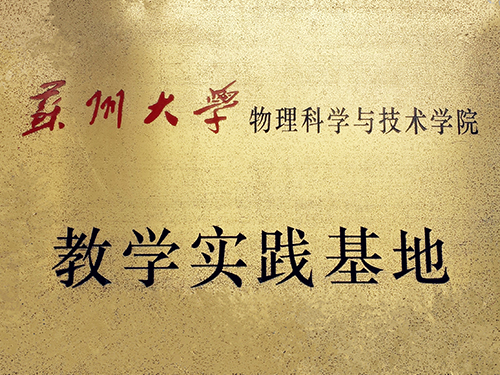 蘇州大学物理科学与技术学院
教学实践基地